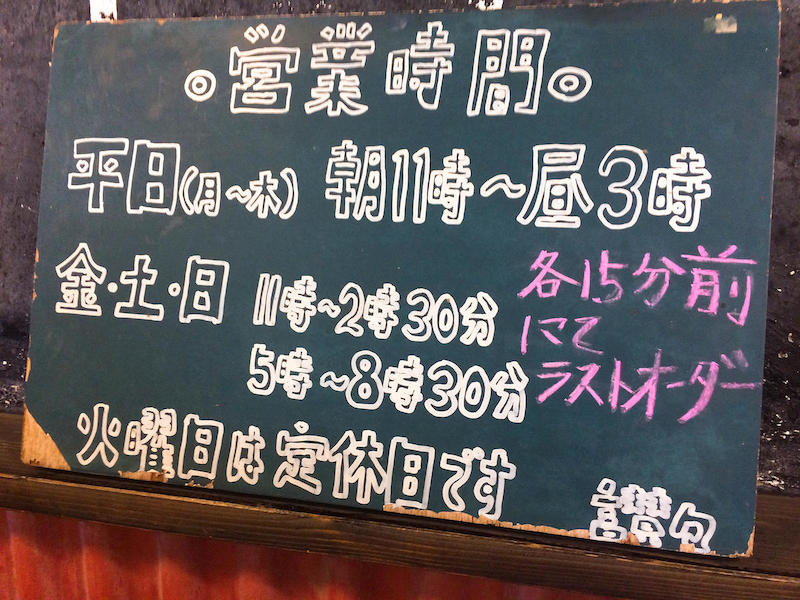 ◎営業時間◎
平日(月~木) 朝11時~昼3時
金・土・日 11時~2時30分
5時~8時30分
各15分前
にて
ラストオーダー
火曜日は定休日です
讃匂